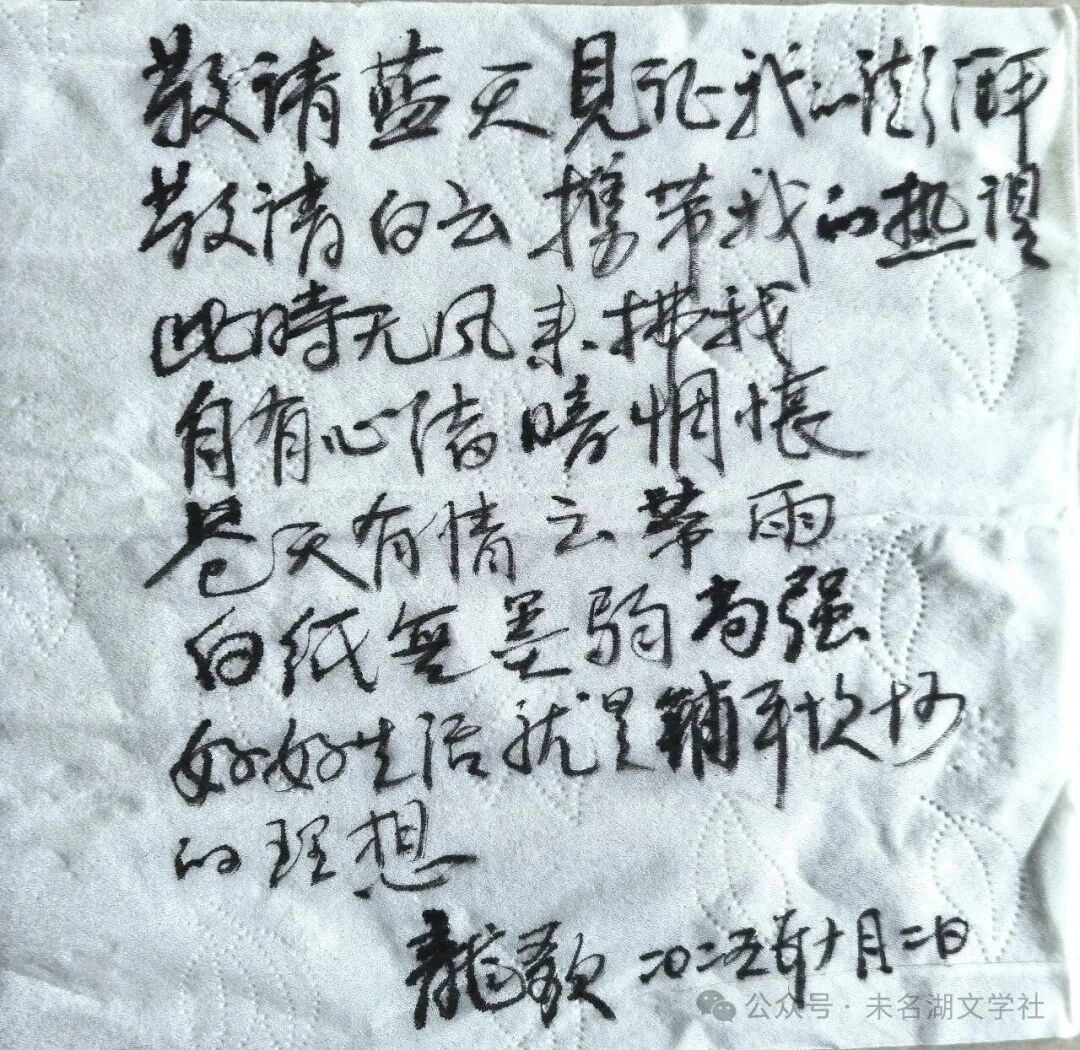 敬请蓝天見证我的澎湃
敬请白云携带我的热望
此時无风来拂我
自有心暗惆怅
苍天有情云带雨
白纸無墨弱尚强
好好生活就是鋪平坎坷
的理想
龍歌 二〇二五年十月二日
公众号 · 未名湖文学社